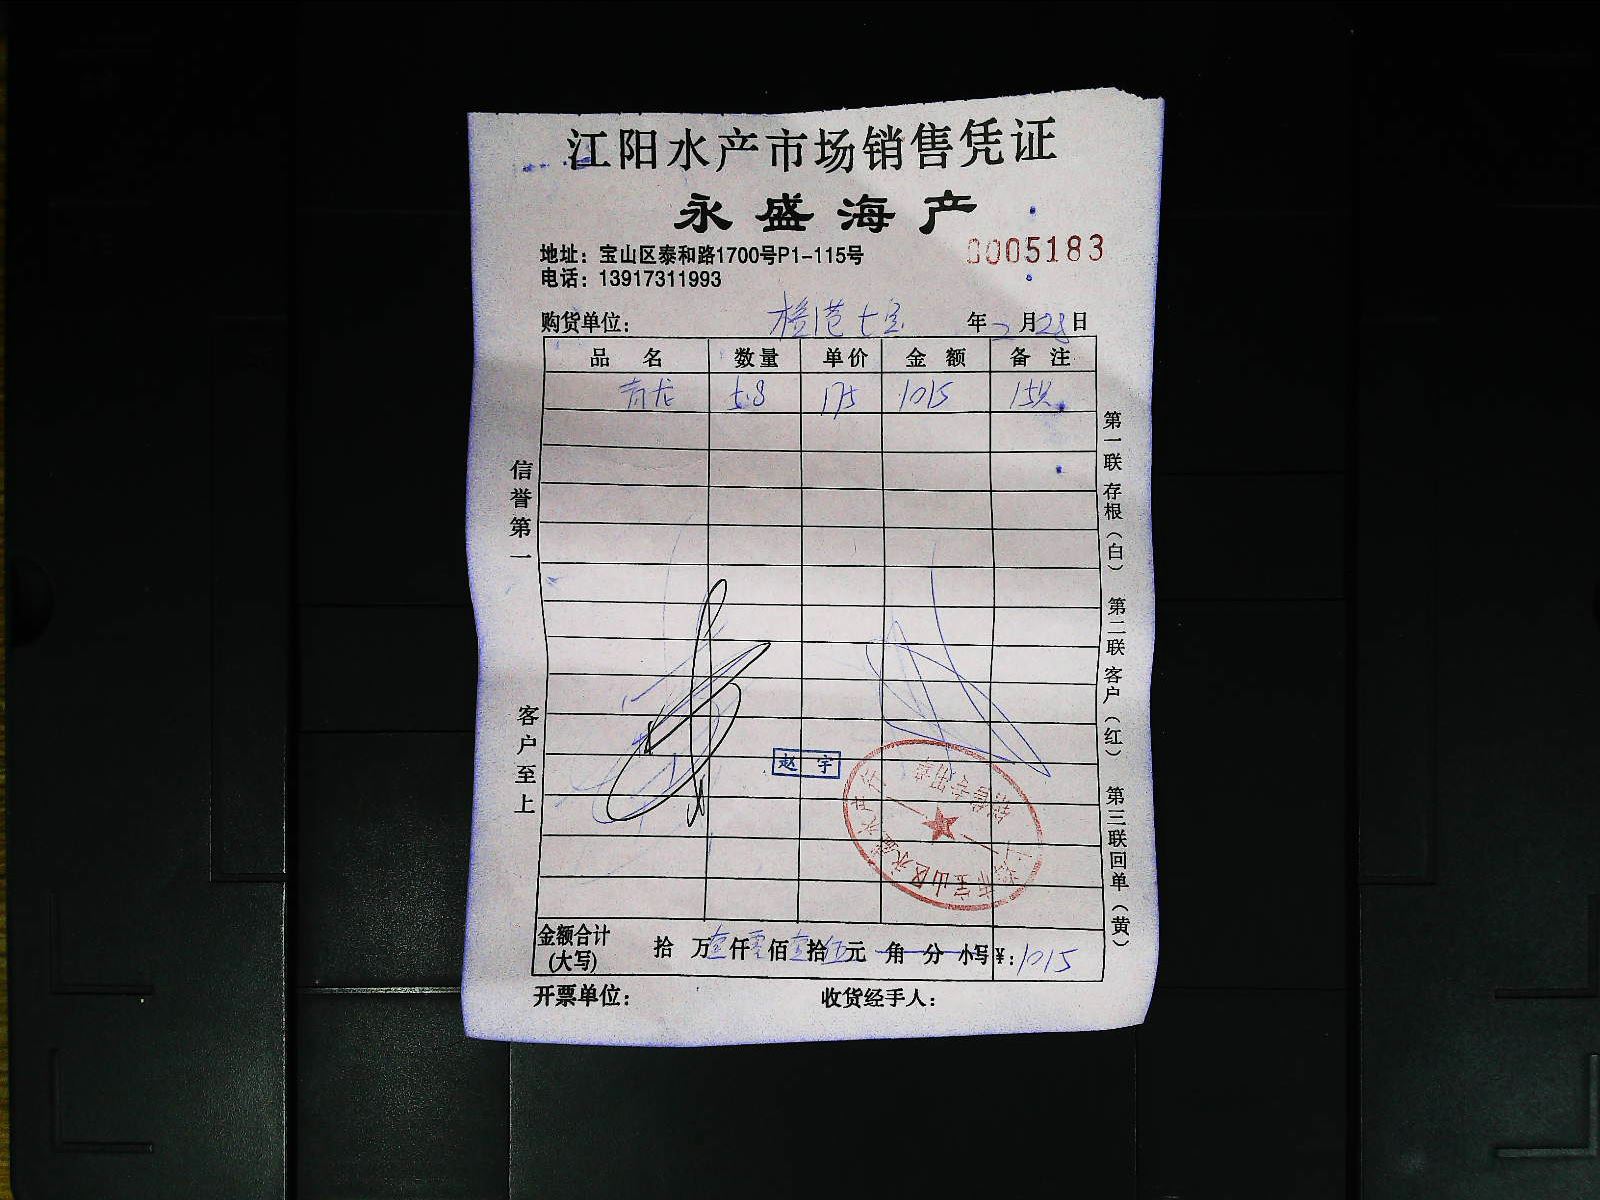 江阳水产市场销售凭证
永盛海产
地址：宝山区泰和路1700号P1-115号
0005183
电话：13917311993
购货单位： 七宝 年 2 月 28 日
品名 数量 单价 金额 备注
青龙 5.8 175 1015 15只
信誉第一
客户至上
第一联 存根（白） 第二联 客户（红） 第三联 回单（黄）
赵宇
宝山区永盛水产
销售专用章
金额合计（大写） 拾 万 壹 仟 零 佰 壹 拾 伍 元 角 分 小写￥：1015
开票单位： 收货经手人：